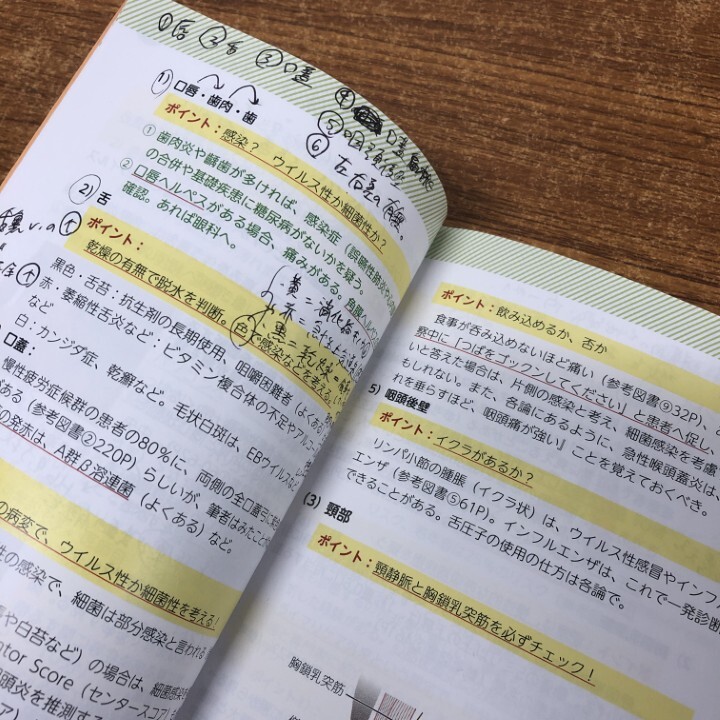 ①唇 ②舌 ③口蓋
④ 口蓋扁桃
⑤咽頭後壁
⑥ 左右差の有無。
1) 口唇・歯肉・歯
ポイント：感染？　ウイルス性か細菌性か？
① 歯肉炎や齲歯が多ければ、感染症（誤嚥性肺炎
の合併や基礎疾患に糖尿病がないかを疑う。
② 口唇ヘルペスがある場合、痛みがある。角膜ヘルペス
確認。あれば眼科へ。
2) 舌
ポイント：
乾燥の有無で脱水を判断。色で感染などを考える
黒色：舌苔：抗生剤の長期使用、咀嚼困難者（よくある
赤：萎縮性舌炎など：ビタミン複合体の不足やアルコー
など
白：カンジダ症、乾癬など。毛状白斑は、EBウイルスなど
口蓋：
慢性疲労症候群の患者の80%に、両側の全口蓋弓に
がある（参考図書②220P）らしいが、筆者はみたことが
の発赤は、A群β溶連菌（よくある）など。
の病変で、ウイルス性か細菌性を考える！
性の感染で、細菌は部分感染と言われる
や白苔など）の場合は、細菌感染
ator Score（センタースコア）
咽頭炎を推測する
ポイント：飲み込めるか、否か
食事が呑み込めないほど痛い（参考図書⑨32P）、
察中に「つばをゴックンしてください」と患者へ促し、
いと答えた場合は、片側の感染と考え、細菌感染を考慮
もしれない。また、各論にあるように、急性喉頭蓋炎は、
れを垂らすほど、咽頭痛が強い』ことを覚えておくべき。
5) 咽頭後壁
ポイント：イクラがあるか？
リンパ小節の腫脹（イクラ状）は、ウイルス性感冒やインフル
エンザ（参考図書⑤61P）。インフルエンザは、これで一発診断
できることがある。舌圧子の使用の仕方は各論で。
(3) 頸部
ポイント：頸静脈と胸鎖乳突筋を必ずチェック！
胸鎖乳突筋